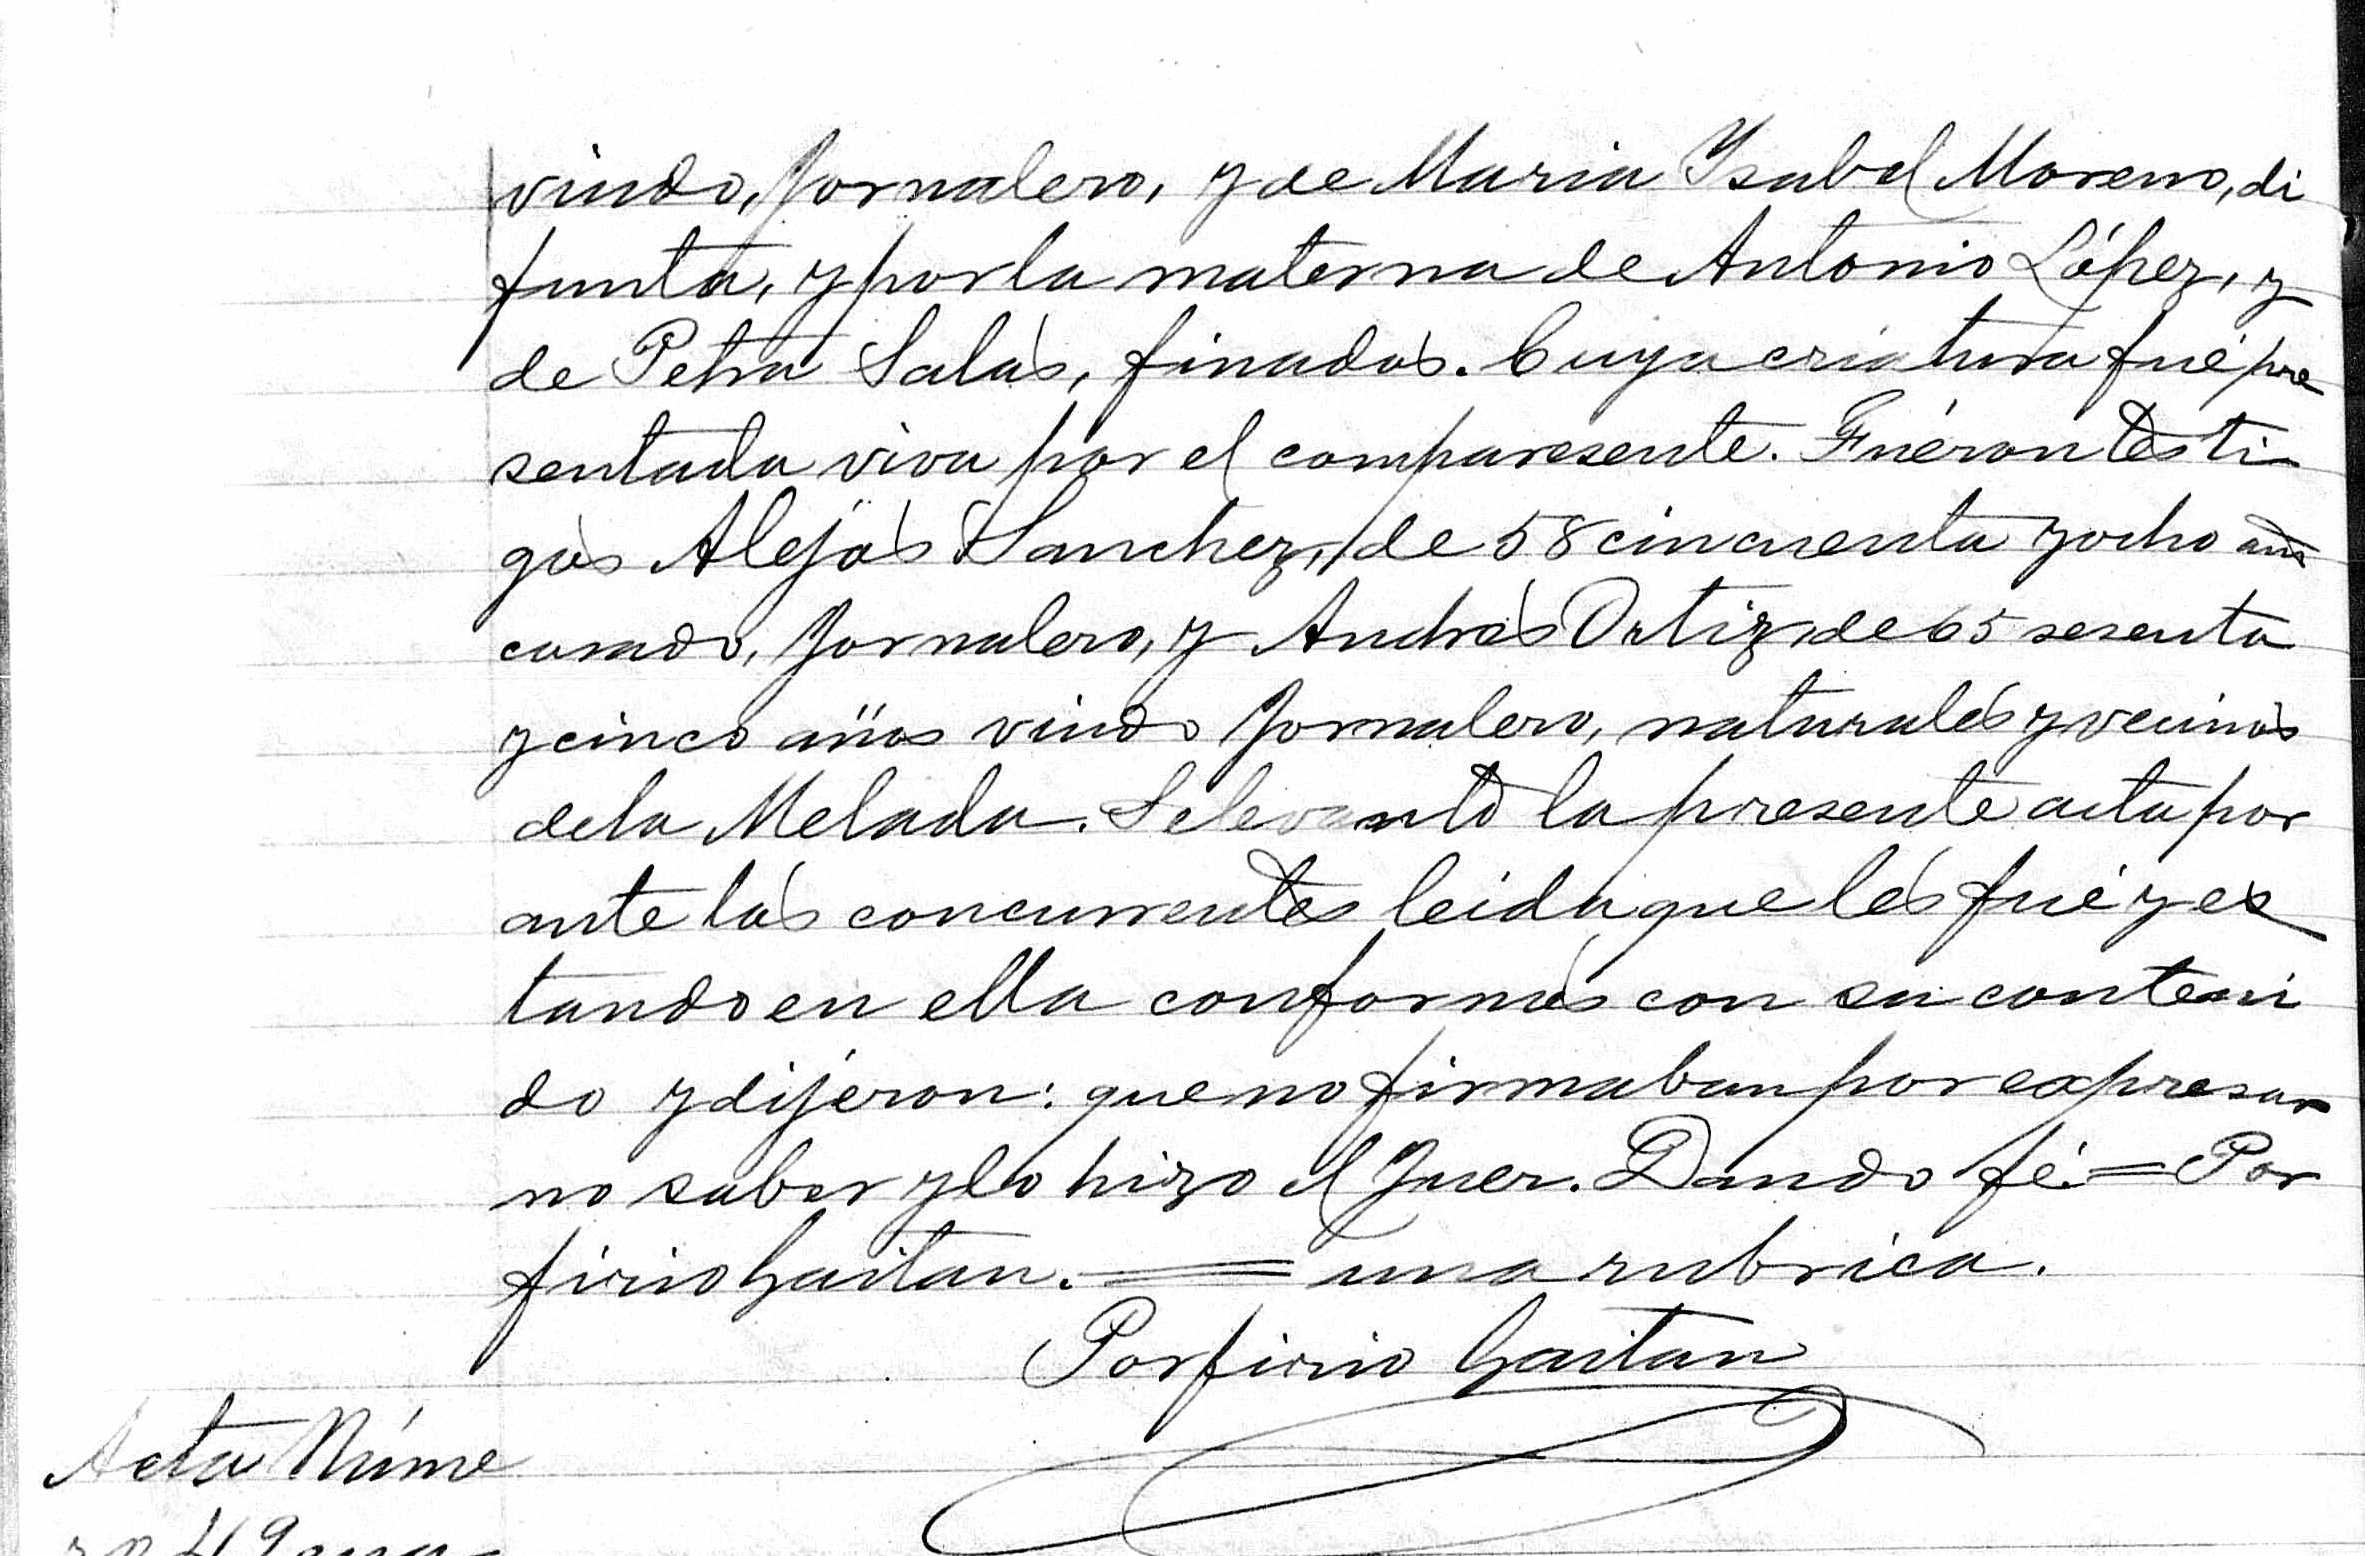 viudo, Jornalero, y de Maria Ysabel Moreno, di
funta, y por la materna de Antonio López, y
de Petra Salas, finados. Cuya criatura fué pre
sentada viva por el comparesente. Fuéron testi
gos Alejos Sanchez, de 58 cincuenta y ocho años
casado, Jornalero, y Andrés Ortiz, de 65 sesenta
y cinco años viudo Jornalero, naturales y vecinos
de la Melada. Se levantó la presente acta por
ante los concurrentes leida que les fué y es
tando en ella conformes con su conteni
do y dijéron: que no firmaban por expresar
no saber y lo hizo el Juez. Dando fé. = Por
firio Gaitan. = una rubrica.
Porfirio Gaitan
Acta Núme
ro 49